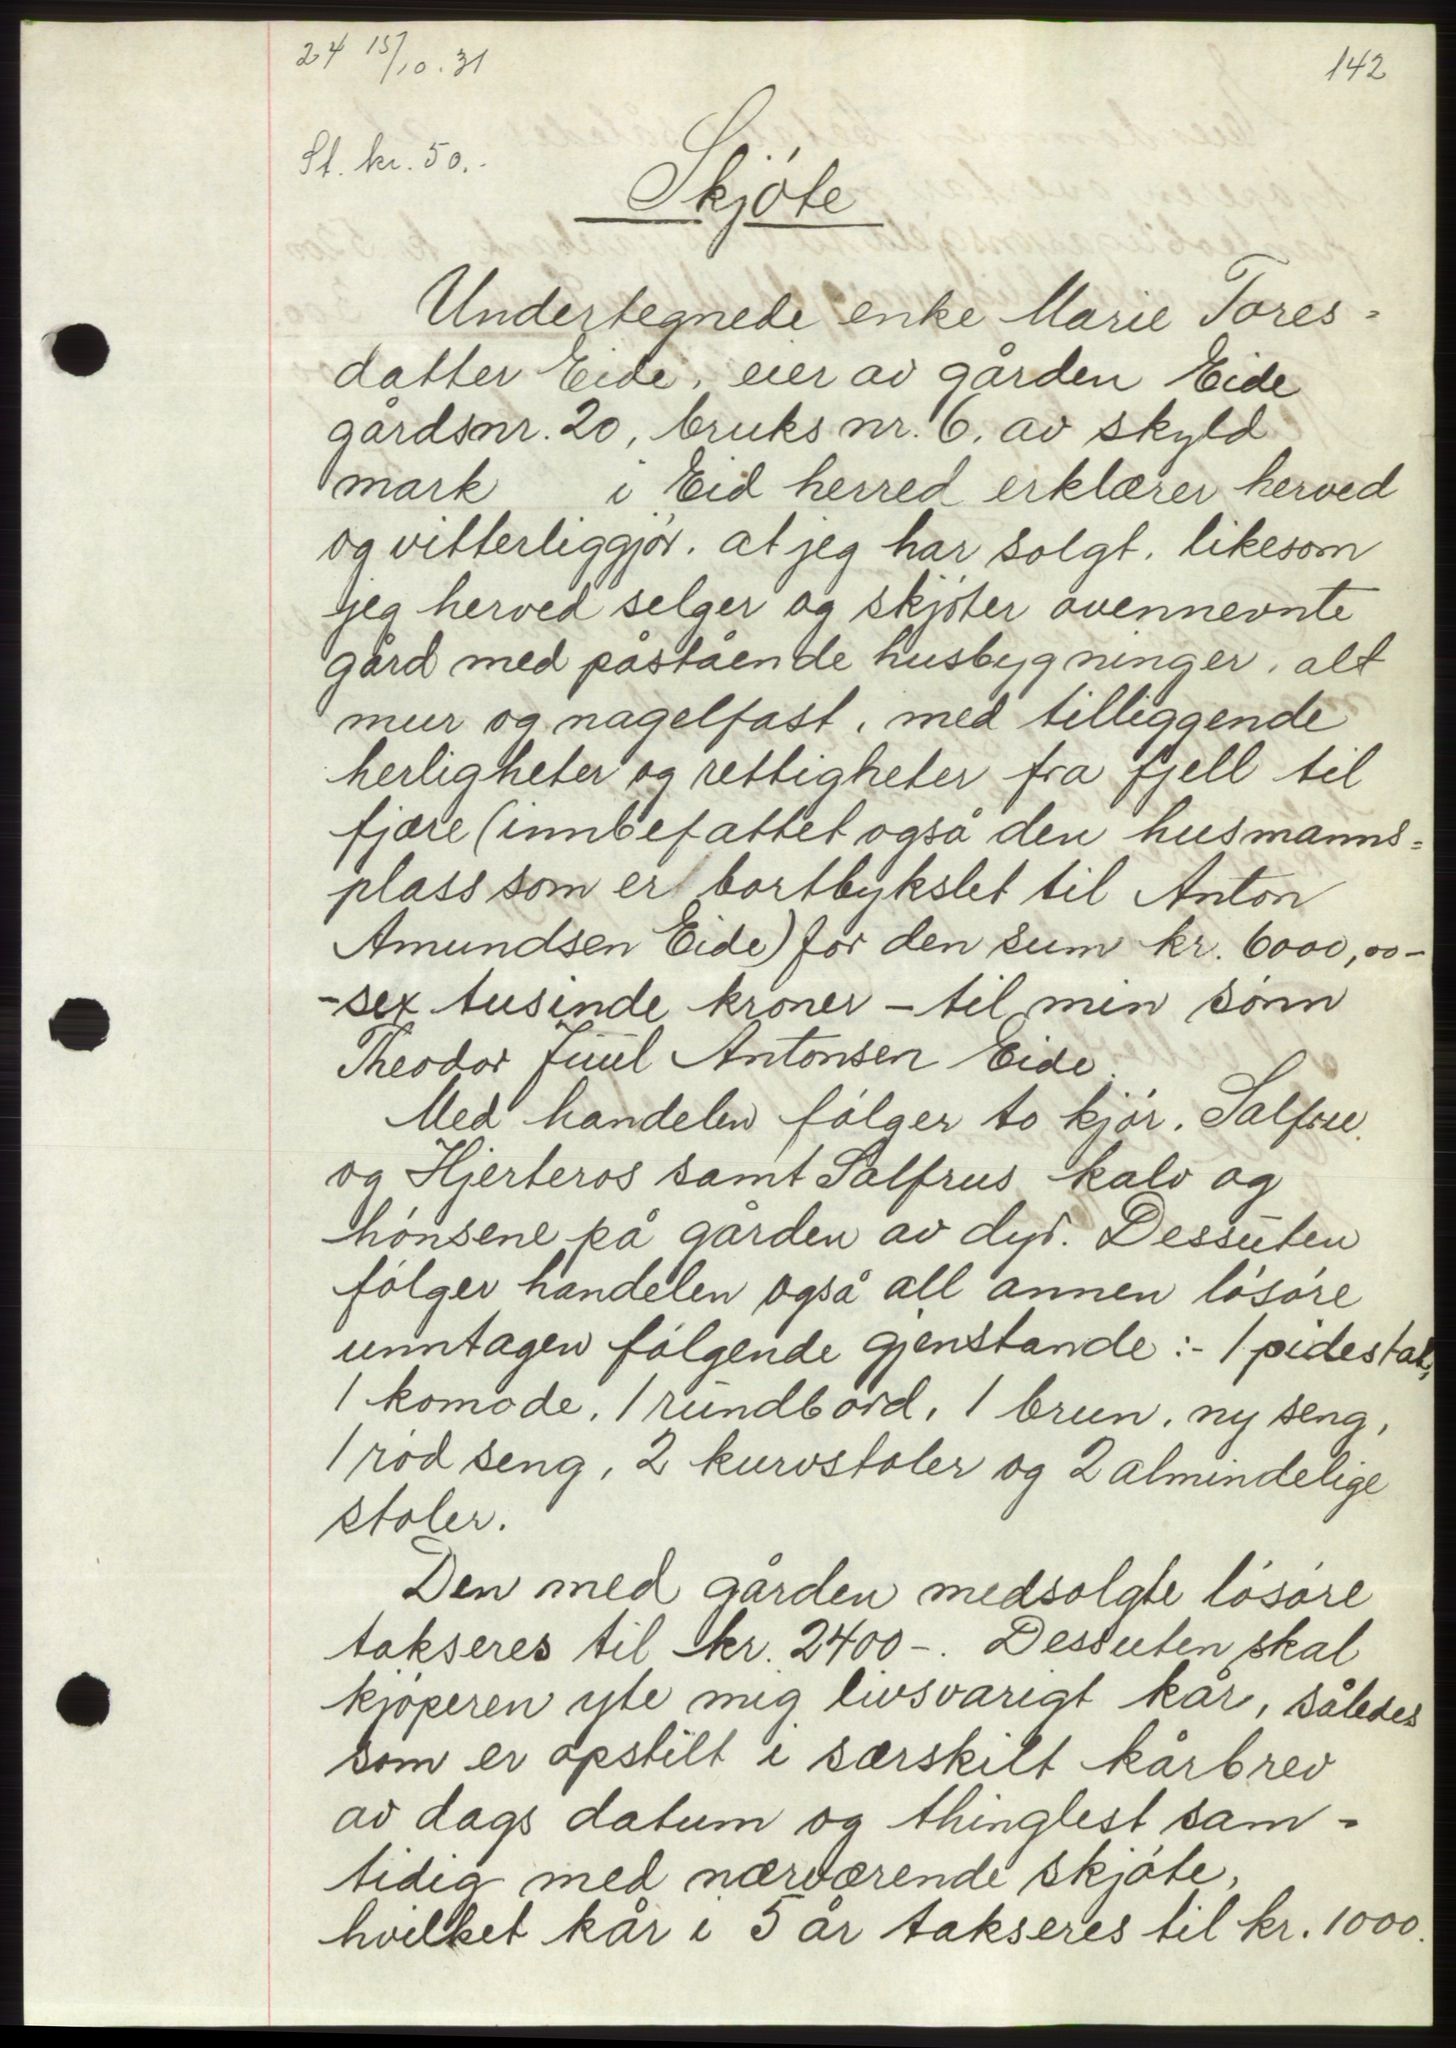 24 15/10.31
142
St. kr. 50.-
Skjøte
Undertegnede enke Marie Tores=
datter Eide, eier av gården Eide
gårdsnr. 20, bruks nr. 6, av skyld
mark i Eid herred erklærer herved
og vitterliggjør, at jeg har solgt, likesom
jeg herved selger og skjøter ovennevnte
gård med påstående husbygninger, alt
mur og nagelfast, med tilliggende
herligheter og rettigheter fra fjell til
fjære (innbefattet også den husmanns=
plass som er bortbykslet til Anton
Amundsen Eide) for den sum kr. 6000,00-
-sex tusinde kroner - til min sønn
Theodor Juul Antonsen Eide.
Med handelen følger to kjør, Salfrue
og Hjerteros samt Salfrus kalv og
hønsene på gården av dyr. Dessuten
følger handelen også all annen løsøre
unntagen følgende gjenstande :- 1 pidestal,
1 komode, 1 rundbord, 1 brun, ny seng,
1 rød seng, 2 kurvstoler og 2 almindelige
stoler.
Den med gården medsolgte løsøre
takseres til kr. 2400-. Dessuten skal
kjøperen yte mig livsvarigt kår, således
som er opstilt i særskilt kårbrev
av dags datum og thinglest sam-
tidig med nærværende skjøte,
hvilket kår i 5 år takseres til kr. 1000.